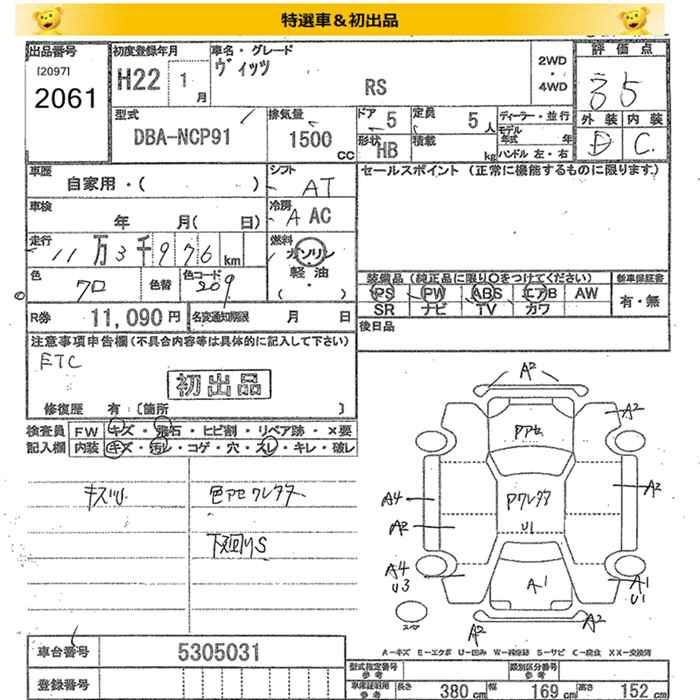 特選車＆初出品
出品番号
[2097]
2061
初度登録年月
H22 1月
車名・グレード
ヴィッツ
RS
2WD
・
4WD
評価点
3.5
外装 内装
D C
型式
DBA-NCP91
排気量
1500 CC
ドア 5
形状 HB
定員 5人
積載 kg
ディーラー・並行
モデル年式 年
ハンドル 左・右
車歴
自家用・( )
シフト
AT
セールスポイント (正常に機能するものに限ります。)
車検
年 月( 日)
冷房
A AC
走行
11万3千976km
燃料
ガソリン
軽油
( ・ )
色
クロ
色替
色コード
209
装備品 (純正品に限り〇をつけてください)
PS PW ABS エアB AW
SR ナビ TV カワ
新車保証書
有・無
R券 11,090円
名変通知期限 月 日
後日品
注意事項申告欄(不具合内容等は具体的に記入して下さい)
ETC
初出品
修復歴 有:〔箇所 〕
検査員 FW キズ・飛石・ヒビ割・リペア跡・×要
記入欄 内装 キズ・汚レ・コゲ・穴・スレ・キレ・破レ
キズU
色アセ クレクタ
下廻りS
A2
A2
Pアセ
A4
A2
Pクレクタ
U1
A2
A4
U3
A1
A1
U1
スペア
A2
A2
A－キズ E－エクボ U－凹み W－純跡 S－サビ C－腐食 XX－交換済
車台番号 5305031
登録番号
型式指定番号 参考
類別区分番号 参考
車庫証明用 参考
長さ 380 cm 幅 169 cm 高さ 152 cm